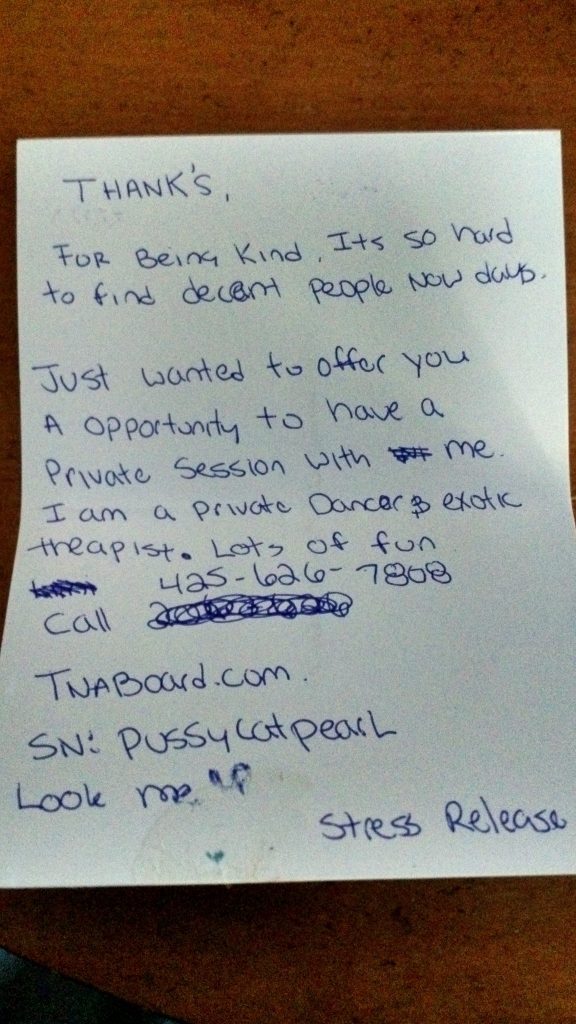 THANK'S,
FOR Being Kind. Its so hard
to find decent people Now days.
Just wanted to offer you
A opportunity to have a
Private Session with me.
I am a private Dancer & exotic
theapist. Lots of fun
425-626-7808
Call
TNABoard.com.
SN: pussycatpearl
Look me up
Stress Release